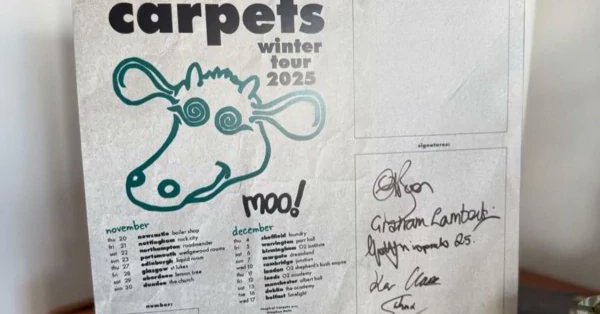 carpets
winter
tour
2025
moo!
november
thu 20 newcastle boiler shop
fri 21 nottingham rock city
sat 22 northampton roadmender
sun 23 portsmouth wedgewood rooms
thu 27 edinburgh liquid room
fri 28 glasgow st lukes
sat 29 aberdeen lemon tree
sun 30 dundee the church
december
thu 4 sheffield foundry
fri 5 warrington parr hall
sat 6 birmingham O2 institute
margate dreamland
cambridge junction
wed 10 london O2 shepherd's bush empire
leeds O2 academy
manchester albert hall
dublin the academy
wed 17 belfast limelight
number:
signatures:
Graham Lambert
25.